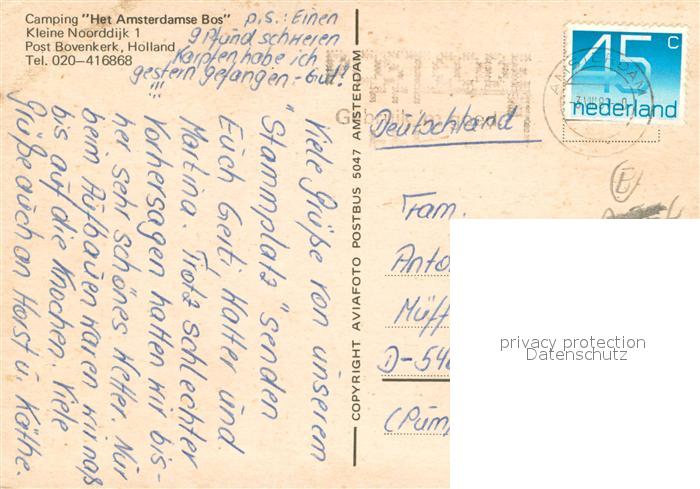 Camping "Het Amsterdamse Bos"
Kleine Noorddijk 1
Post Bovenkerk, Holland
Tel. 020-416868
p.s.: Einen
9 Pfund schweren
Karpfen habe ich
gestern gefangen - Gut!
!!!
Viele Grüße von unserem
"Stammplatz" senden
Euch Gerti Walter und
Martina. Trotz schlechter
Vorhersagen hatten wir bis-
her sehr schönes Wetter. Nur
beim Aufbauen waren wir naß
bis auf die Knochen. Viele
Grüße auch an Horst u. Käthe.
COPYRIGHT AVIAFOTO POSTBUS 5047 AMSTERDAM
POSTCODE
AMSTERDAM
45 c
nederland
Deutschland
Fam.
Anto
Müff
D-54
(Pum
E
privacy protection
Datenschutz